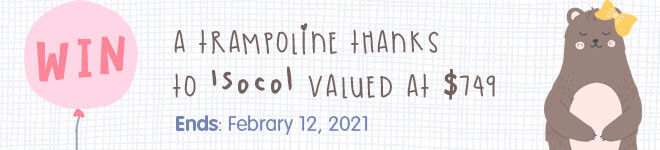 WIN
A TRAMPOLINE THANKS
TO ISOCOL VALUED AT $749
Ends: Febrary 12, 2021